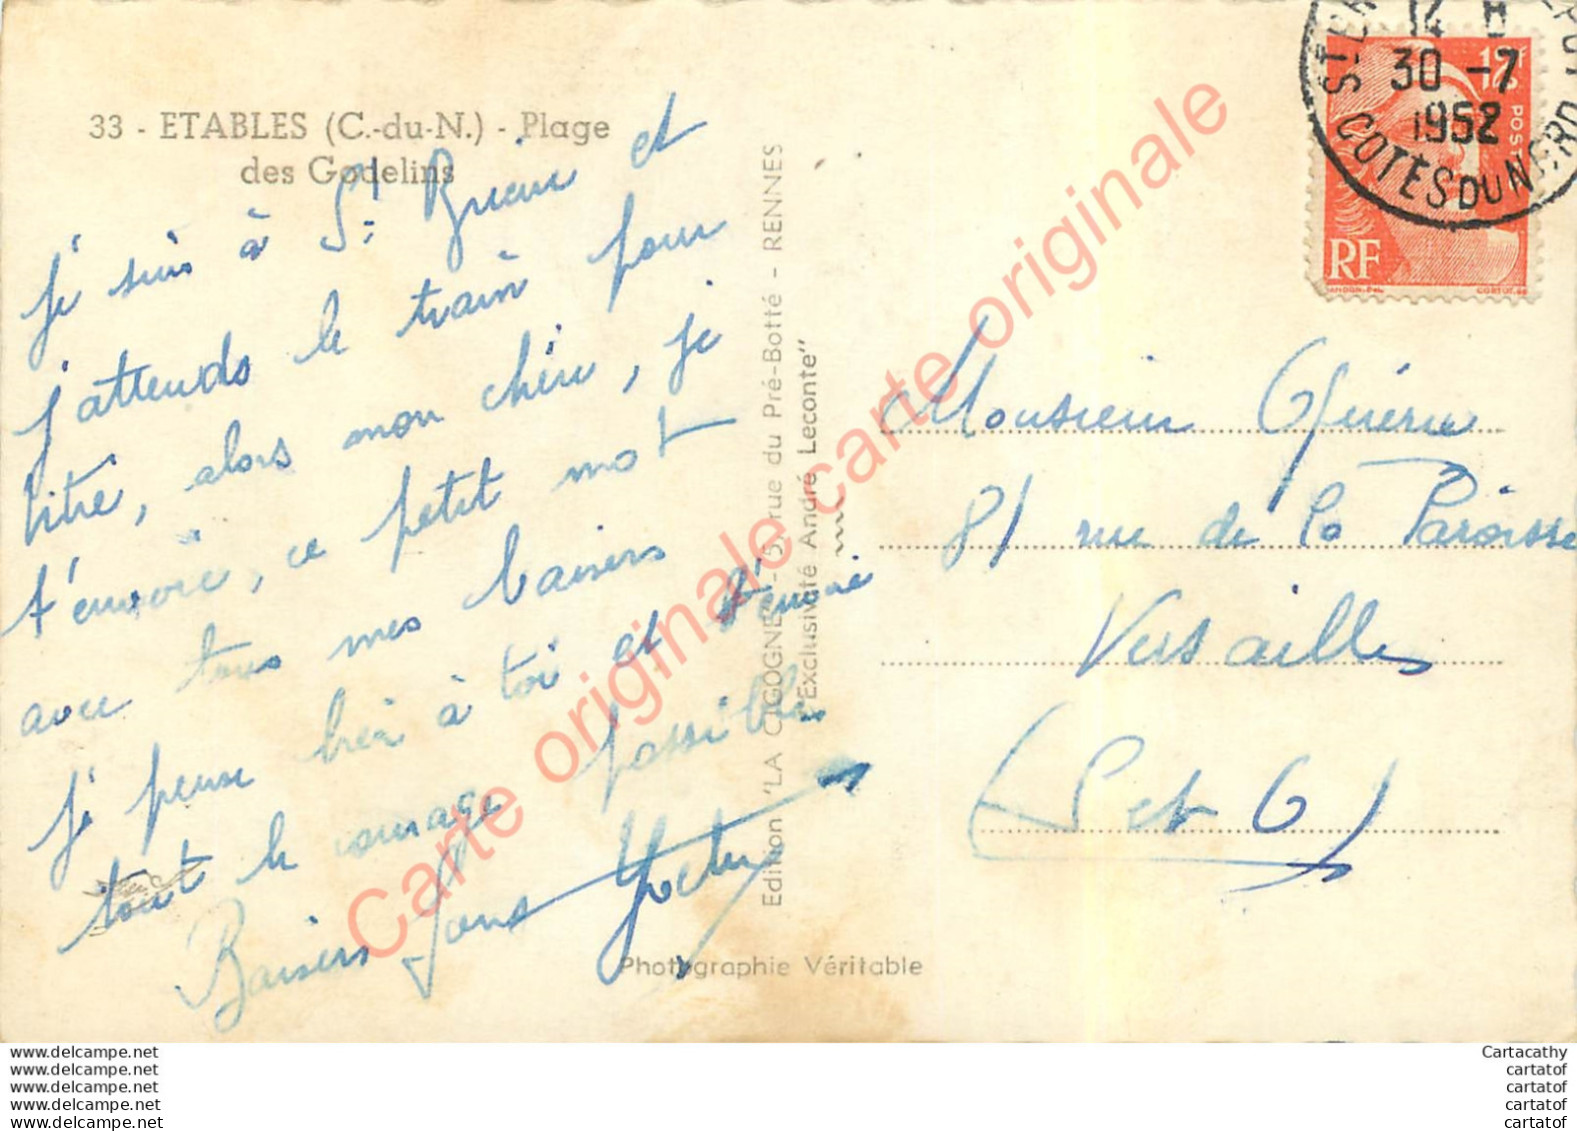 33 - ETABLES (C.-du-N.) - Plage
des Godelins
je suis à St Brieuc et
j'attends le train pour
Vitré, alors mon chéri, je
t'envoie, ce petit mot
avec tous mes baisers
je pense bien à toi et t'envoie
tout le courage possible
Baisers
Photographie Véritable
Edition "LA CIGOGNE" - 5, rue du Pré-Botté - RENNES
"Exclusivité André Leconte"
14 H
30 -7
1952
COTES DU NORD
12F
POSTES
RF
GANDON.DEL.
CORTOT.SC
Monsieur Guérin
81 rue de la Paroisse
Versailles
(S et O)
Carte originale carte originale carte originale
www.delcampe.net
www.delcampe.net
www.delcampe.net
www.delcampe.net
www.delcampe.net
Cartacathy
cartatof
cartatof
cartatof
cartatof